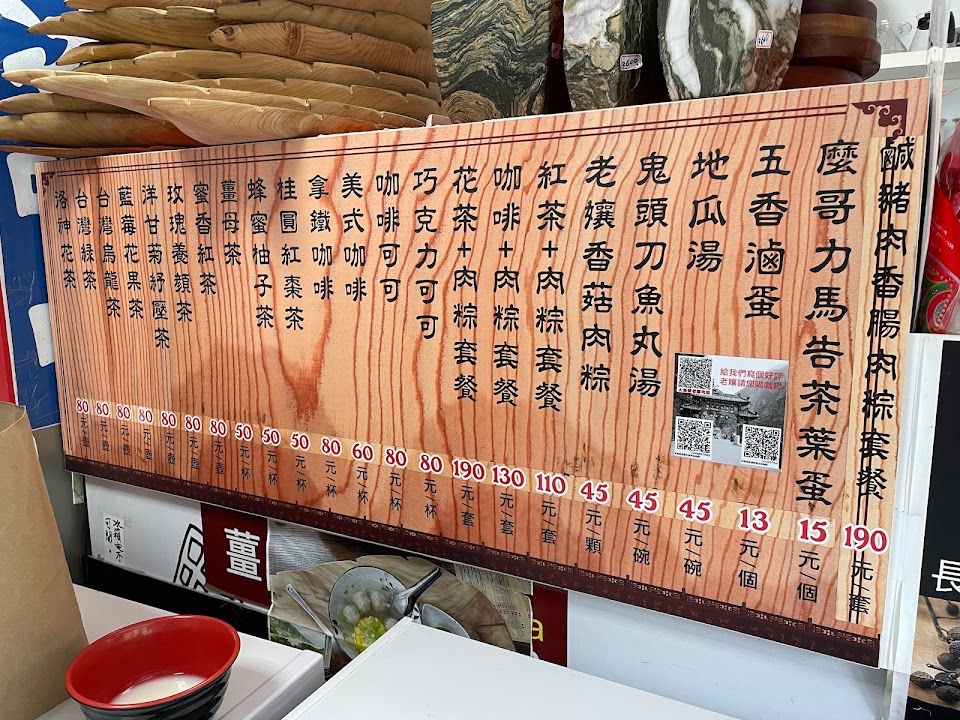 鹹豬肉香腸肉粽套餐 190元/套
麼哥力馬告茶葉蛋 15元/個
五香滷蛋 13元/個
地瓜湯 45元/碗
鬼頭刀魚丸湯 45元/碗
老孃香菇肉粽 45元/顆
紅茶+肉粽套餐 110元/套
咖啡+肉粽套餐 130元/套
花茶+肉粽套餐 190元/套
巧克力可可 80元/杯
咖啡可可 80元/杯
美式咖啡 60元/杯
拿鐵咖啡 80元/杯
桂圓紅棗茶 50元/杯
蜂蜜柚子茶 50元/杯
薑母茶 50元/杯
蜜香紅茶 80元/壺
玫瑰養顏茶 80元/壺
洋甘菊紓壓茶 80元/壺
藍莓花果茶 80元/壺
台灣烏龍茶 80元/壺
台灣綠茶 80元/壺
洛神花茶 80元/壺
給我們寫個好評
老孃請您喝咖啡
薑
長
a